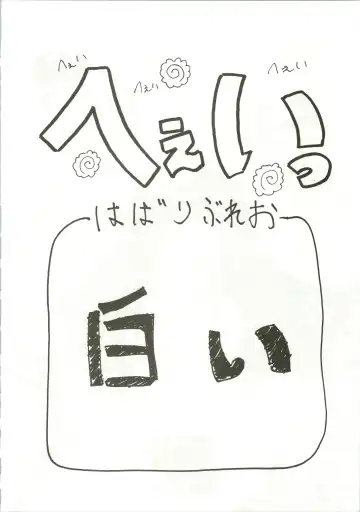 へぇい
へぇい
へぇい
へぇいっ
はばりぶれお
白い